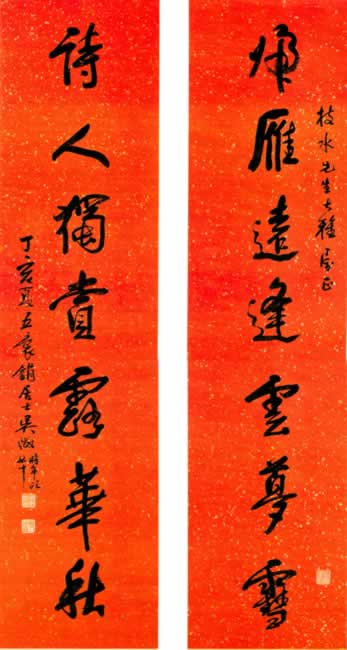 枝水先生大雅屬正
歸雁遠逢雲夢雪
詩人獨賞露華秋
丁亥夏五袌鋗居士吳徵時年
七十